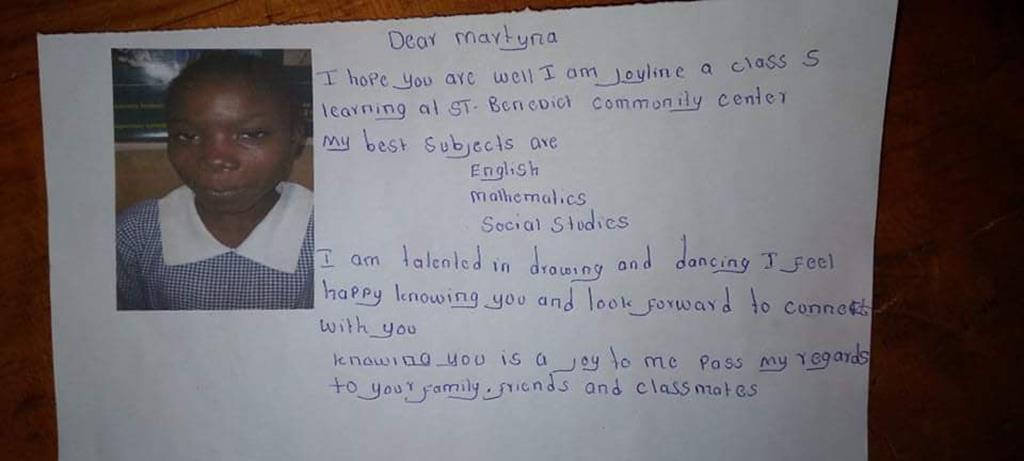 Dear martyna
I hope you are well I am Joyline a class 5
learning at ST. Benedict community center
my best subjects are
English
mathematics
Social Studies
I am talented in drawing and dancing I feel
happy knowing you and look forward to connect
with you
knowing you is a joy to me pass my regards
to your family, friends and classmates